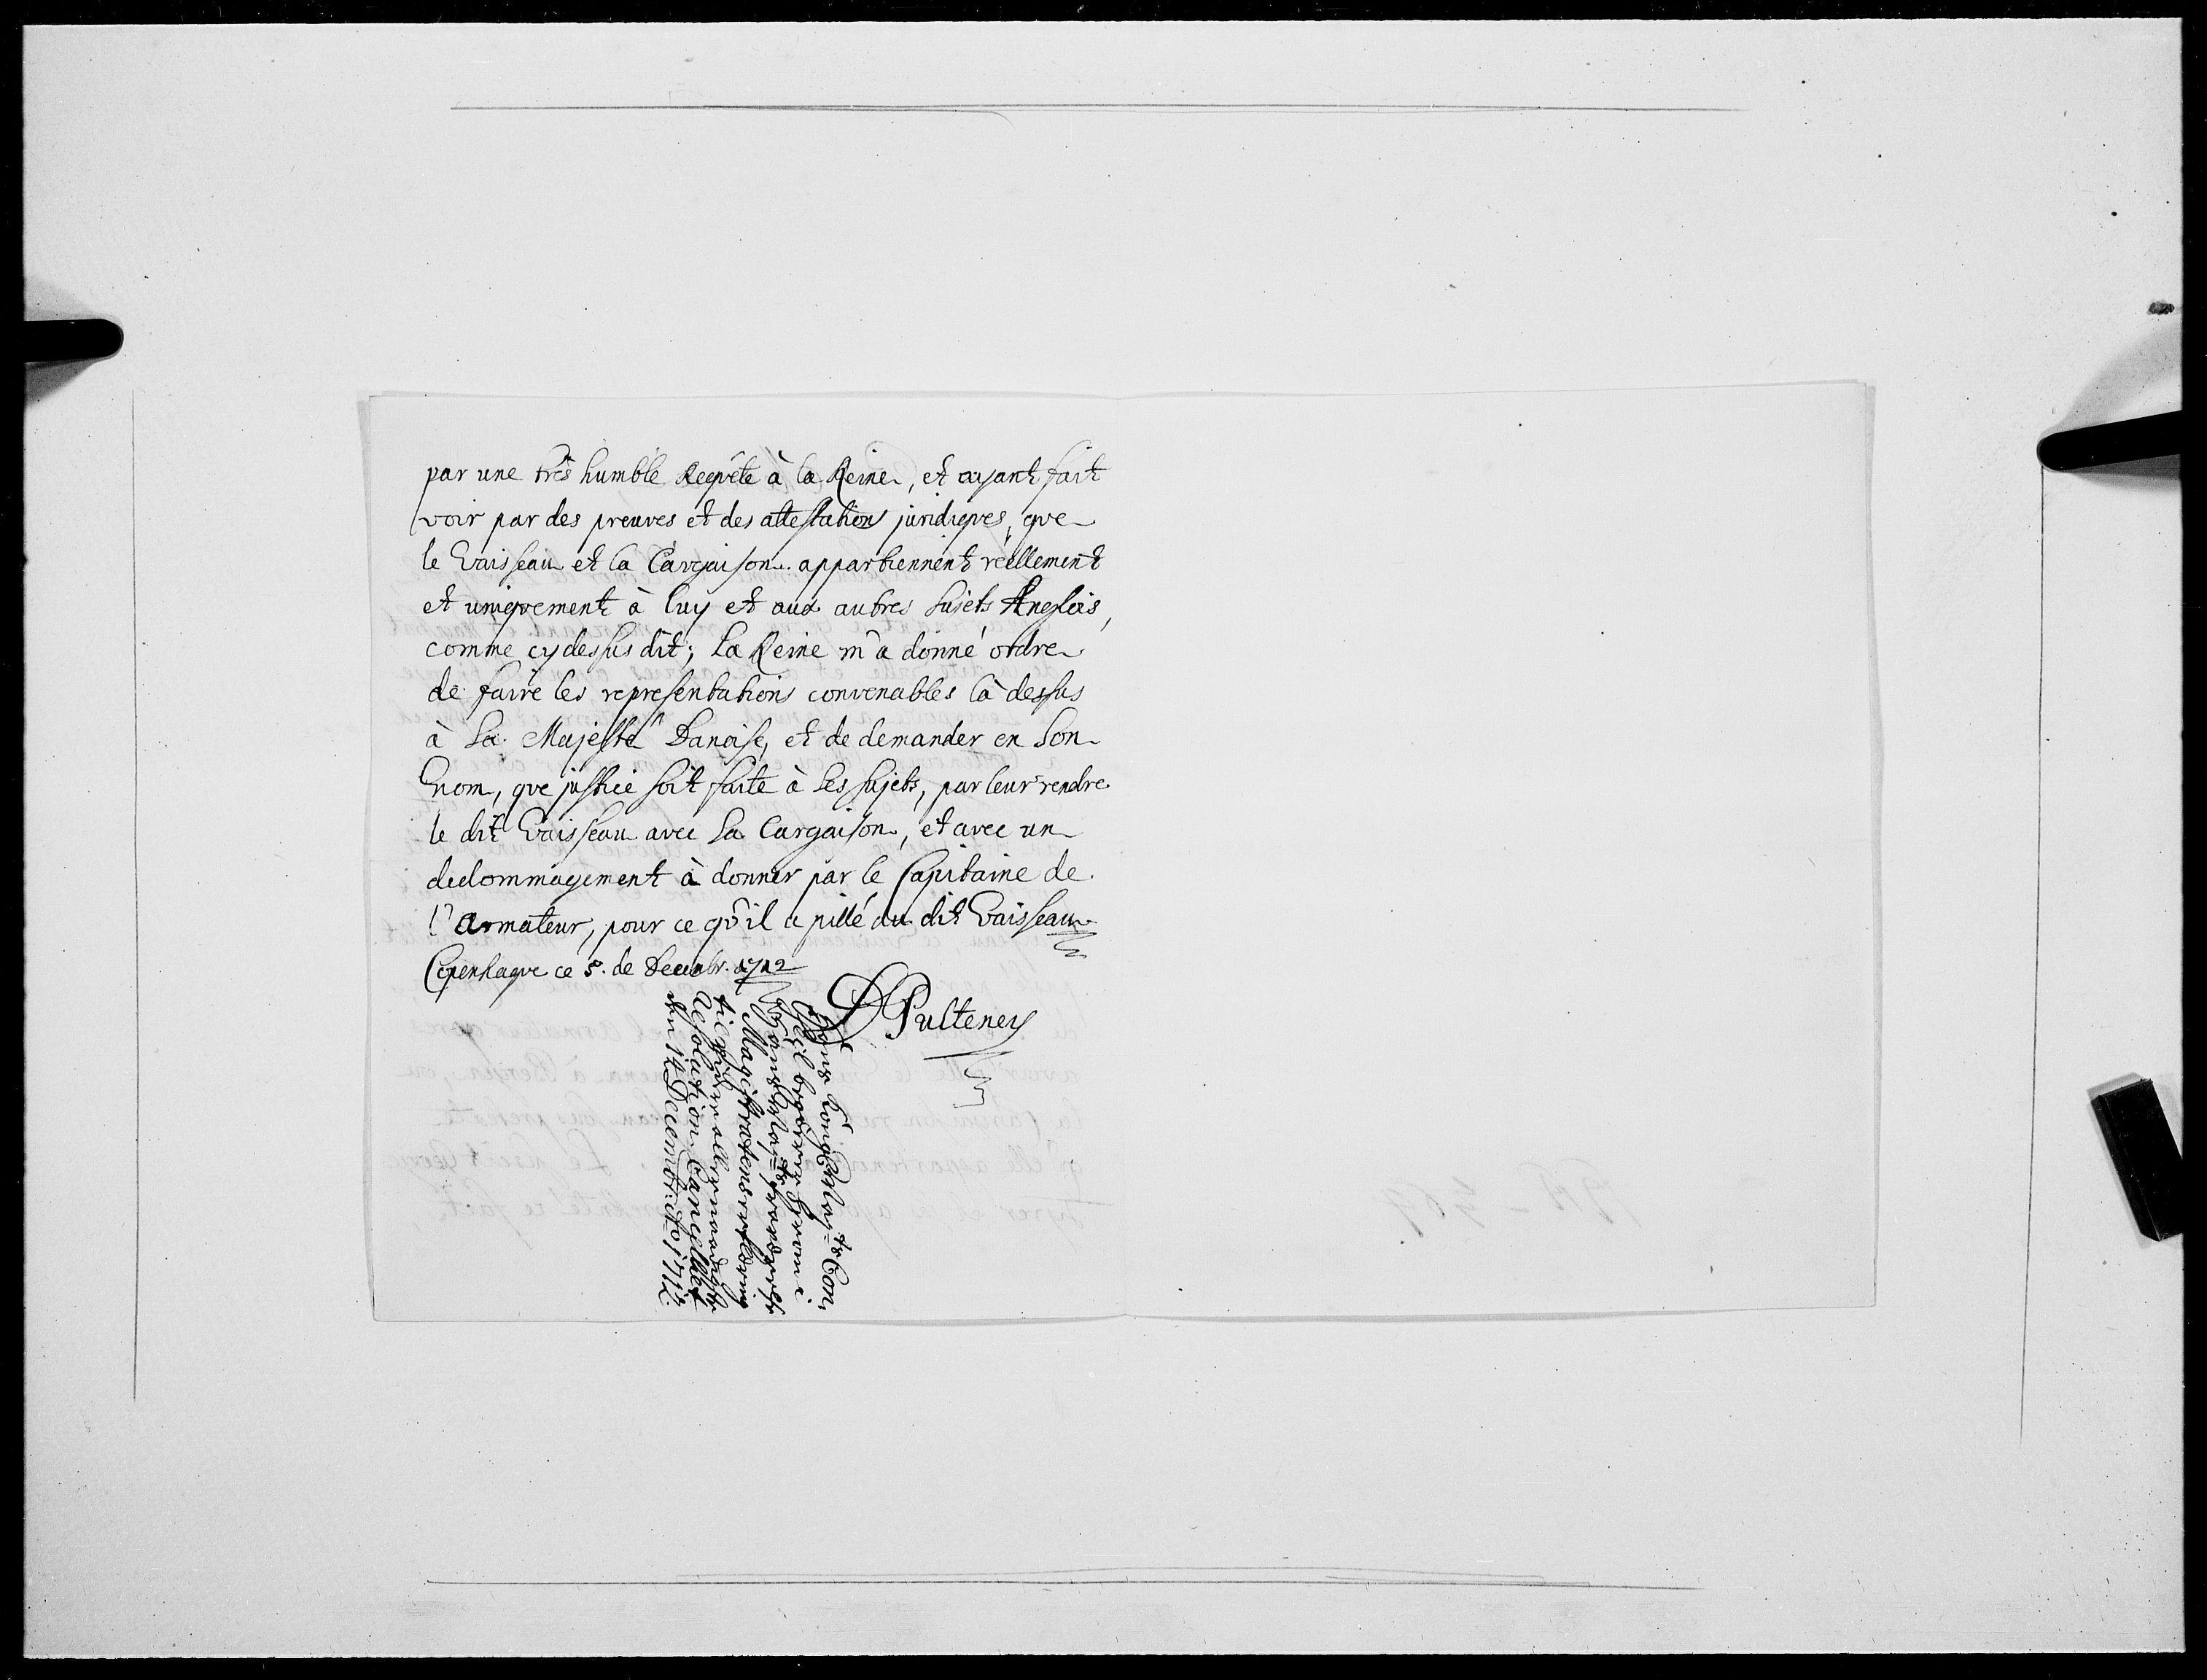 par une très humble Requête à la Reine, et ayant fait
voir par des preuves et des attestations juridiques, que
le Vaisseau et la Cargaison appartiennent réellement
et uniquement à luy et aux autres Sujets Anglois,
comme cy dessus dit; La Reine m'a donné ordre
de faire les representations convenables là dessus
à Sa Majesté Danoise, et de demander en Son
Nom, que justice soit faite à Ses sujets, par leur rendre
le dit Vaisseau avec Sa Cargaison, et avec un
dedommagement à donner par le Capitaine de
l'Armateur, pour ce qu'il a pillé du dit Vaisseau
Copenhague ce 5. de Decembr. 1712
D Pulteney
Kongl Maj:ts Con
Magistratens
Resolution Cancelliet
den 14 Decembr: ao 1712.